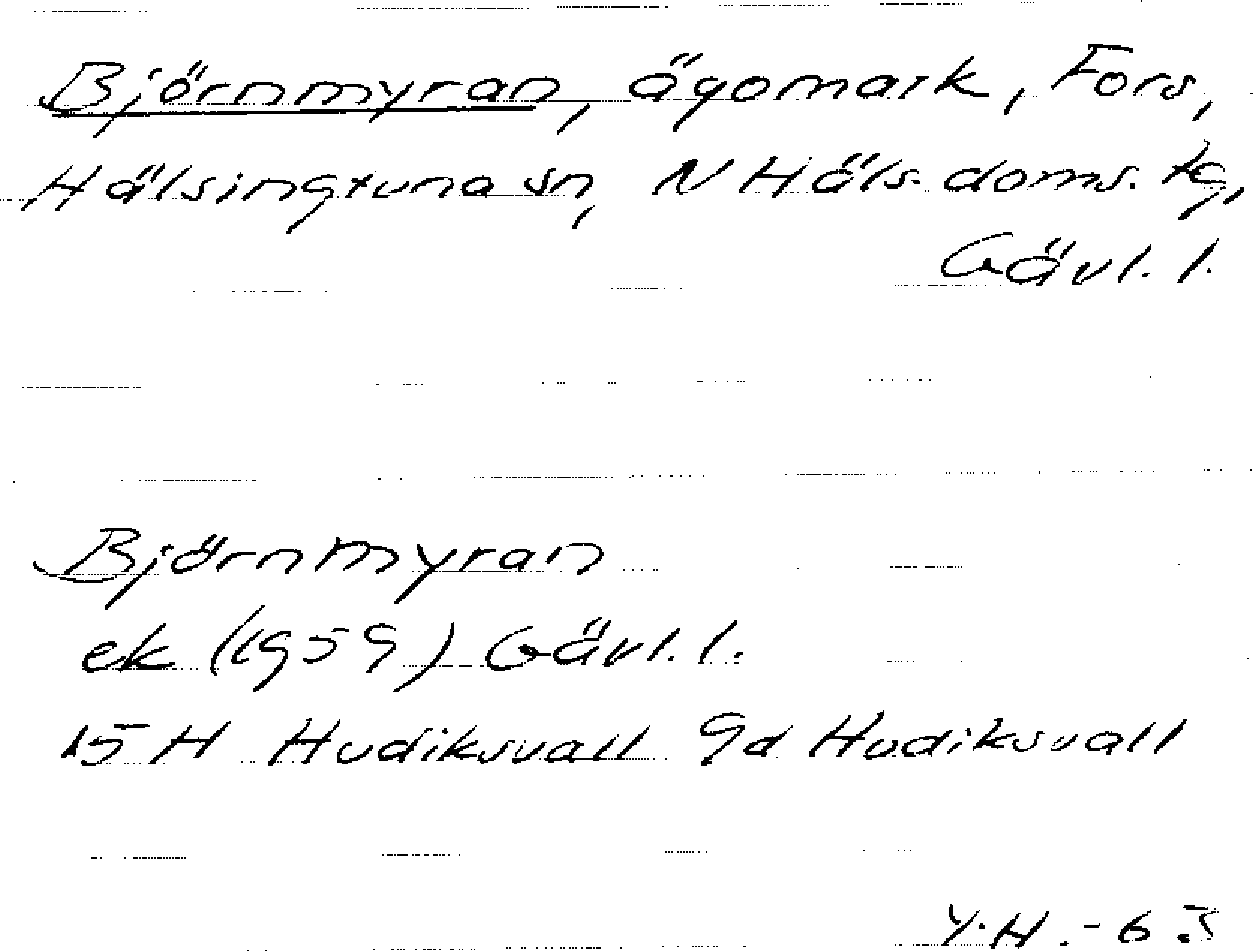 Björnmyran, ägomark, Fors,
Hälsingtuna sn, N Häls. doms. tg,
Gävl. l.
Björnmyran
ek (1959) Gävl. l.
15 H Hudiksvall 9d Hudiksvall
Y.H. - 63